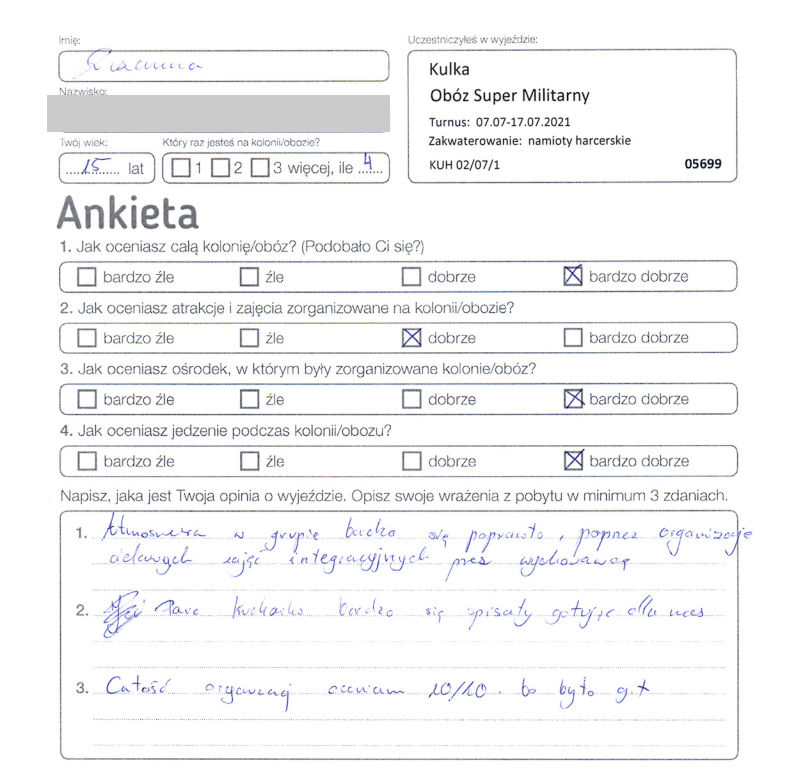 Imię:
Uczestniczyłeś w wyjeździe:
Zuzanna
Kulka
Obóz Super Militarny
Turnus: 07.07-17.07.2021
Zakwaterowanie: namioty harcerskie
KUH 02/07/1 05699
Nazwisko:
Twój wiek: Który raz jesteś na kolonii/obozie?
15 lat 1 2 3 więcej, ile 4
Ankieta
1. Jak oceniasz całą kolonię/obóz? (Podobało Ci się?)
bardzo źle źle dobrze bardzo dobrze
2. Jak oceniasz atrakcje i zajęcia zorganizowane na kolonii/obozie?
bardzo źle źle dobrze bardzo dobrze
3. Jak oceniasz ośrodek, w którym były zorganizowane kolonie/obóz?
bardzo źle źle dobrze bardzo dobrze
4. Jak oceniasz jedzenie podczas kolonii/obozu?
bardzo źle źle dobrze bardzo dobrze
Napisz, jaka jest Twoja opinia o wyjeździe. Opisz swoje wrażenia z pobytu w minimum 3 zdaniach.
1. Atmosfera w grupie bardzo się poprawiła, poprzez organizację
ciekawych zajęć integracyjnych przez wychowawcę
2. kucharki bardzo się spisały gotując dla nas
3. Całość organizacji oceniam 10/10. bo było git